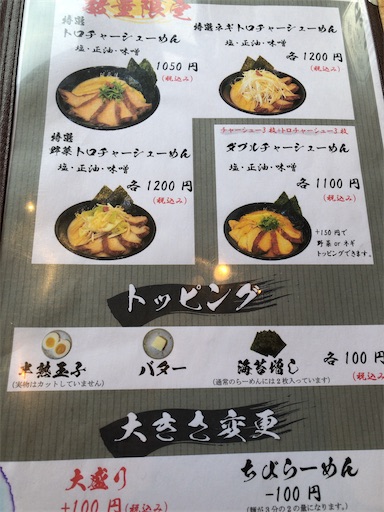 数量限定
特選
トロチャーシューめん
塩・正油・味噌
1050円
(税込み)
特選ネギトロチャーシューめん
塩・正油・味噌
各1200円
(税込み)
特選
野菜トロチャーシューめん
塩・正油・味噌
各1200円
(税込み)
チャーシュー3枚・トロチャーシュー3枚
ダブルチャーシューめん
塩・正油・味噌
各1100円
(税込み)
+150円で
野菜orネギ
トッピングできます。
トッピング
半熟玉子
(実物はカットしていません)
バター
海苔増し
(通常のらーめんには2枚入っています)
各100円
(税込み)
大きさ変更
大盛り
+100円(税込み)
ちびらーめん
-100円
(麺が3分の2の量になります。)